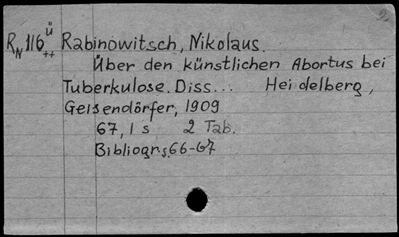 R_N 116 ü ++ Rabinowitsch, Nikolaus.
Über den künstlichen Abortus bei
Tuberkulose. Diss... Heidelberg,
Geisendörfer, 1909
67, 1 s 2 Tab.
Bibliogr. s. 66-67